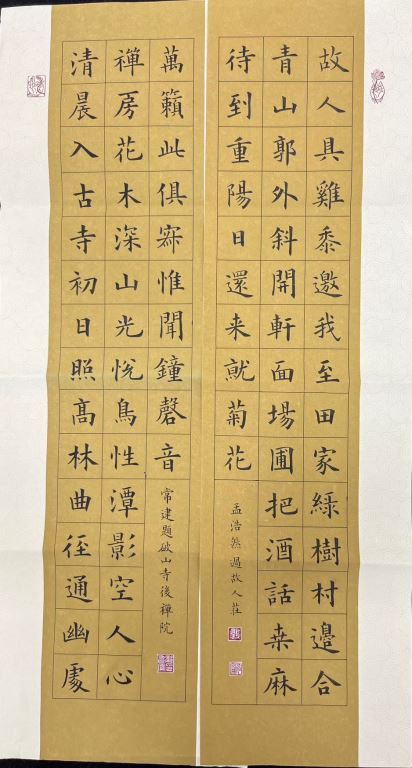 故人具雞黍邀我至田家綠樹村邊合
青山郭外斜開軒面場圃把酒話桒麻
待到重陽日還来就菊花
孟浩然過故人莊
清晨入古寺初日照髙林曲徑通幽處
禪房花木深山光悅鳥性潭影空人心
萬籟此俱寂惟聞鐘磬音
常建題破山寺後禪院